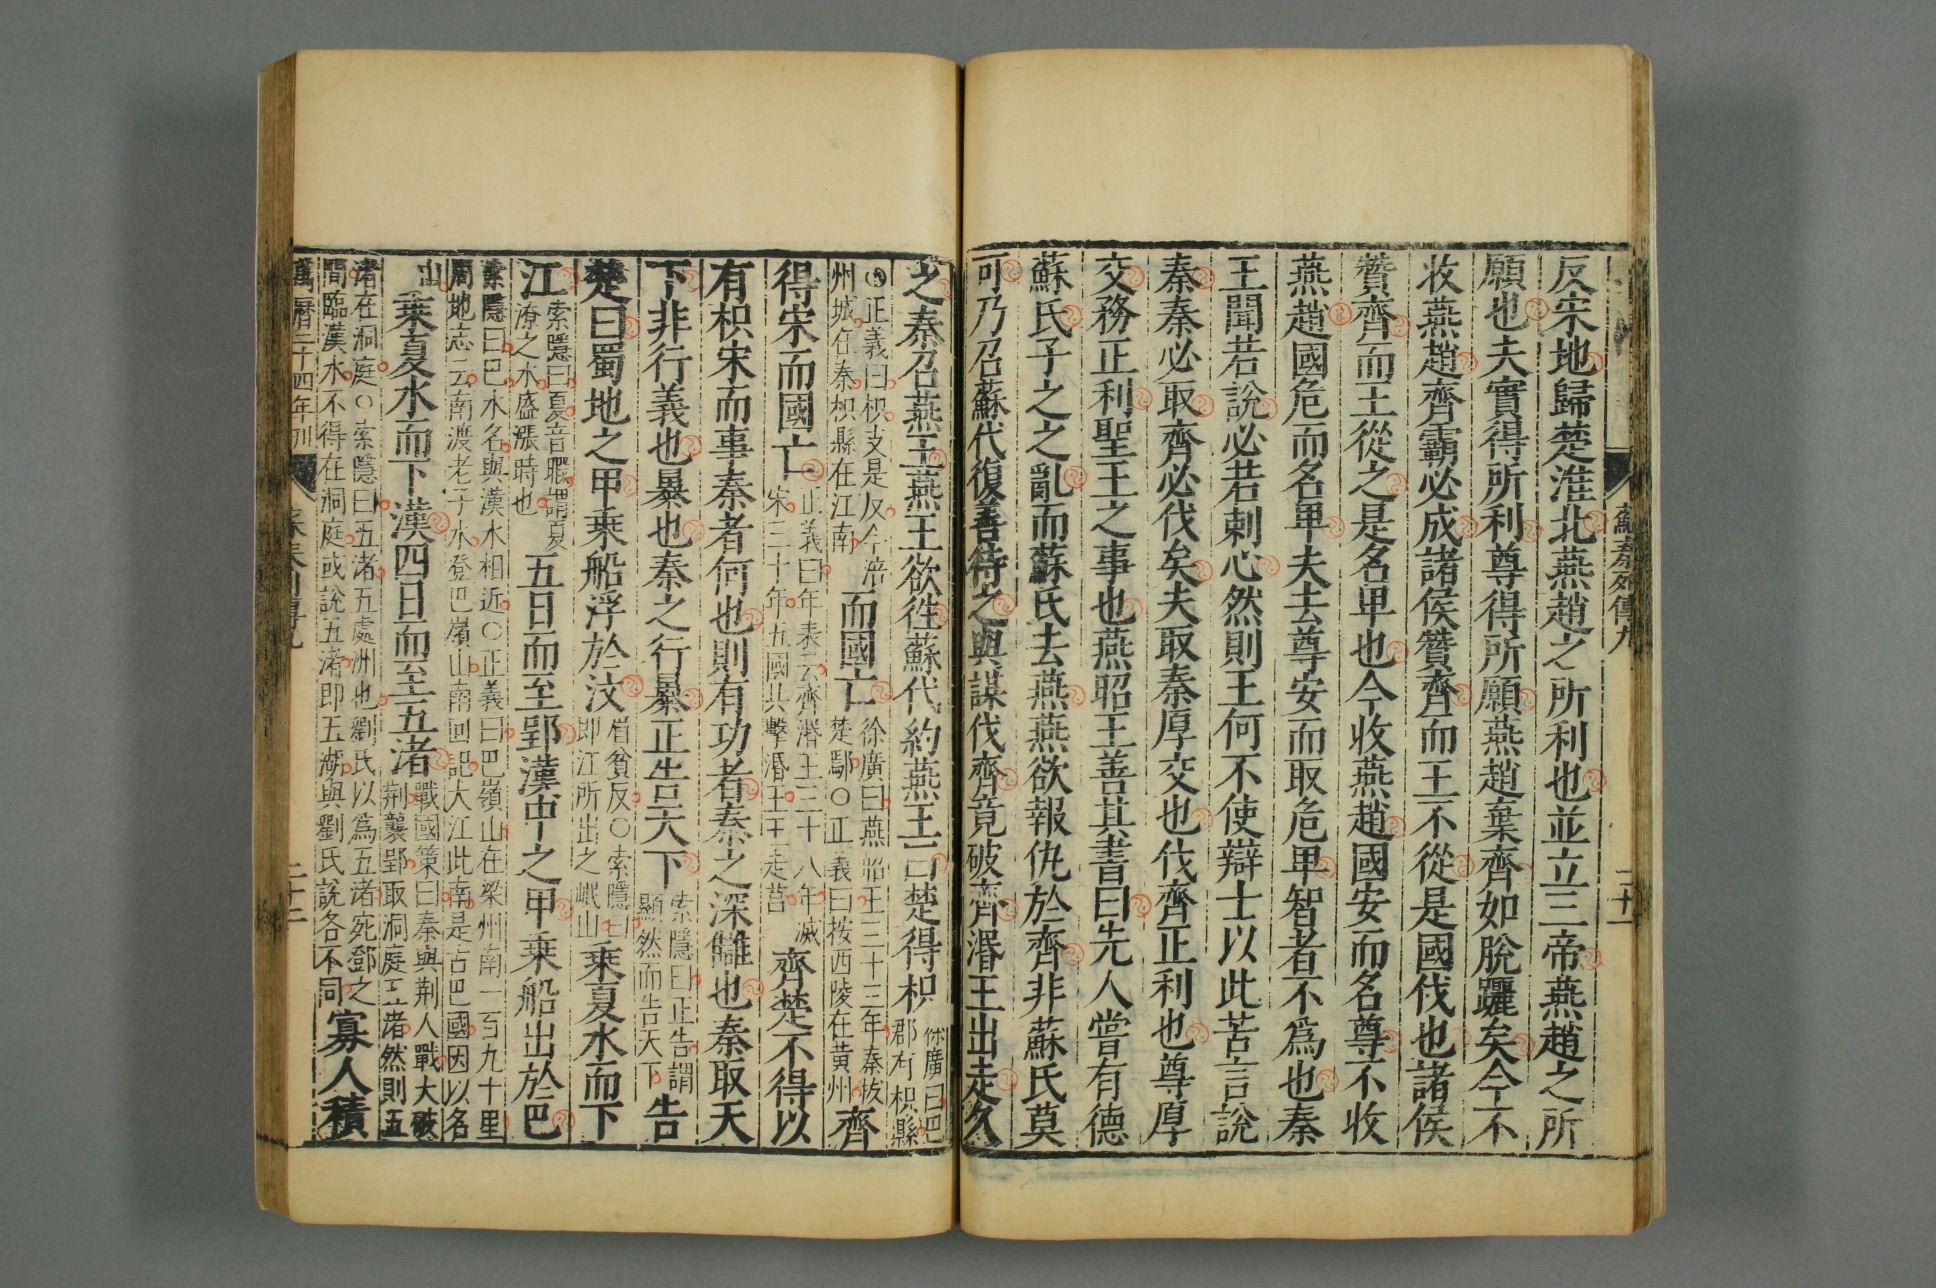 蘇秦列傳九
二十一
反宋地歸楚淮北燕趙之所利也並立三帝燕趙之所
願也夫實得所利尊得所願燕趙棄齊如脫躧矣今不
收燕趙齊霸必成諸侯贊齊而王不從是國伐也諸侯
贊齊而王從之是名卑也今收燕趙國安而名尊不收
燕趙國危而名卑夫去尊安而取危卑智者不為也秦
王聞若說必若刺心然則王何不使辯士以此苦言說
秦秦必取齊必伐矣夫取秦厚交也伐齊正利也尊厚
交務正利聖王之事也燕昭王善其書曰先人嘗有德
蘇氏子之之亂而蘇氏去燕燕欲報仇於齊非蘇氏莫
可乃召蘇代復善待之與謀伐齊竟破齊湣王出走久
之秦召燕王燕王欲徃蘇代約燕王曰楚得枳徐廣曰巴郡有枳縣
○正義曰枳支是反今涪州城在秦枳縣在江南而國亡徐廣曰燕昭王三十三年秦拔楚鄢○正義曰按西陵在黃州齊
得宋而國亡正義曰年表云齊湣王三十八年滅宋三十年五國共擊湣王王走莒齊楚不得以
有枳宋而事秦者何也則有功者秦之深讎也秦取天
下非行義也暴也秦之行暴正告天下索隱曰正告謂顯然而告天下告
楚曰蜀地之甲乗船浮於汶眉貧反○索隱曰即江所出之岷山乗夏水而下
江索隱曰夏音暇謂夏潦之水盛漲時也五日而至郢漢中之甲乗船出於巴
索隱曰巴水名與漢水相近○正義曰巴嶺山在梁州南一百九十里周地志云南渡老子水登巴嶺山南回記大江此南是古巴國因以名
山乗夏水而下漢四日而至五渚戰國策曰秦與荆人戰大破荆襲郢取洞庭五渚然則五
渚在洞庭○索隱曰五渚五處洲也劉氏以為五渚宛鄧之間臨漢水不得在洞庭或說五渚即五湖與劉氏說各不同寡人積
萬曆二十四年刊
二十二